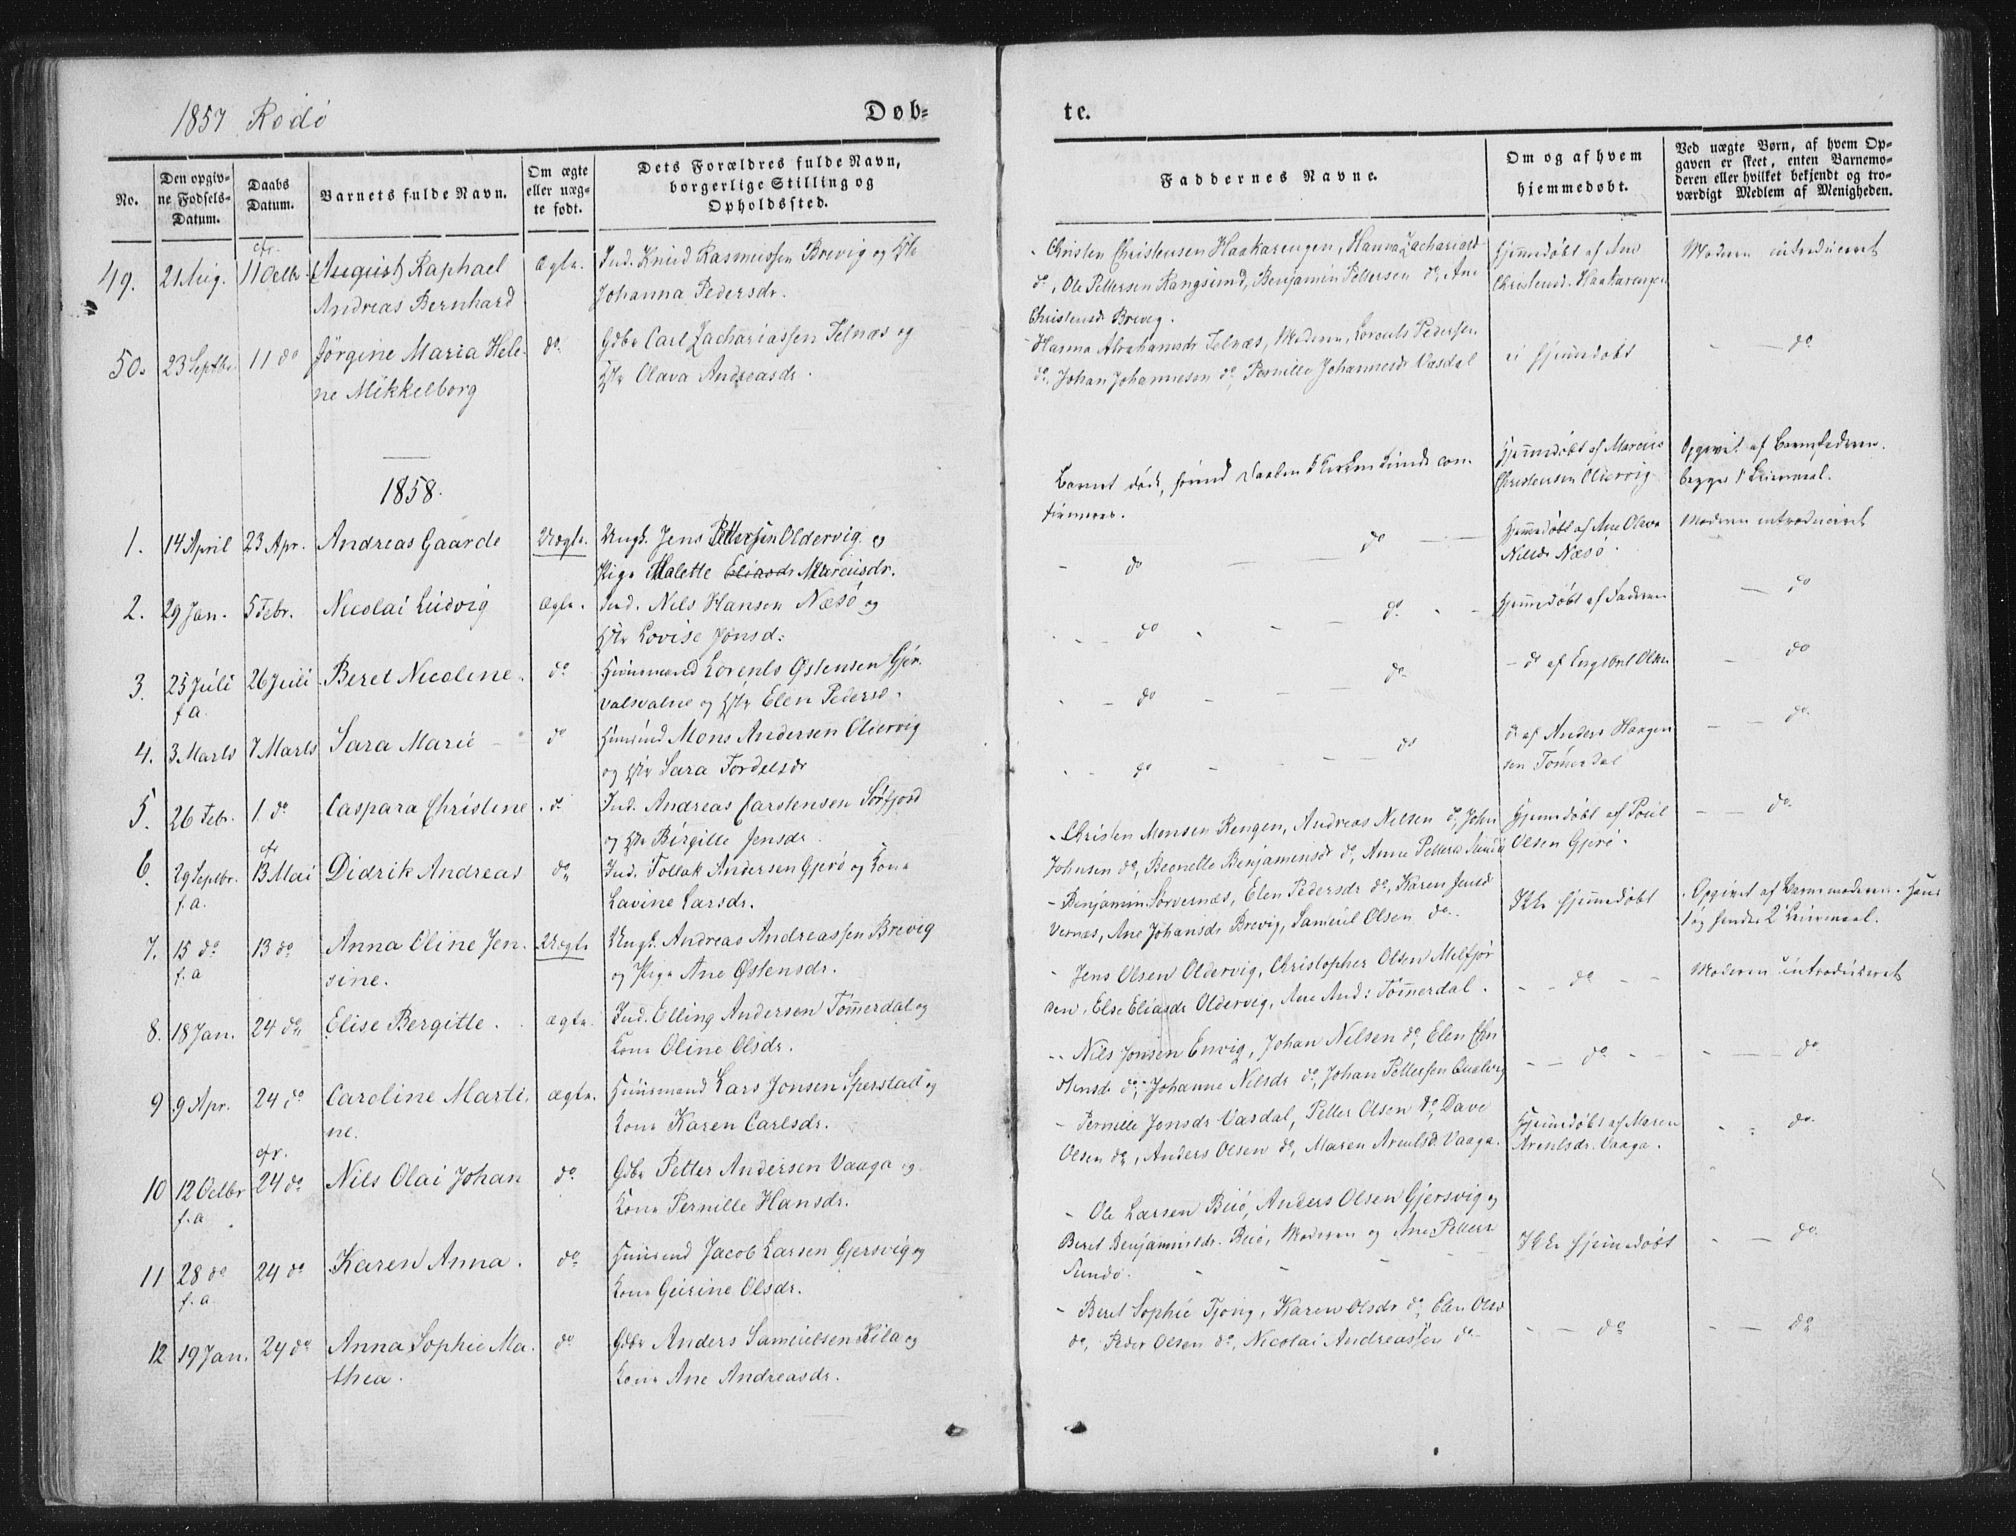 1857 Rødø
Døb=
te.
No.
Den opgiv=
ne Fødsels=
Datum.
Daabs
Datum.
Barnets fulde Navn.
Om ægte
eller uæg=
te født.
Dets Forældres fulde Navn,
borgerlige Stilling og
Opholdssted.
Faddernes Navne.
Om og af hvem
hjemmedøbt.
Ved uægte Børn, af hvem Op=
gaven er skeet, enten Barnemo=
deren eller hvilket bekjendt og tro=
værdigt Medlem af Menigheden.
49. 21 Aug. cfr. 11 Octbr (August) Raphael Ægte. Ind. Knud Rasmussen Brevig og Hstr
Andreas Bernhard Johanna Pedersdr.
50. 23 Septbr. 11 do Jørgine Maria Hele- do. Gdbr Carl Zachariassen Selnæs og
ne Mikkelborg Hstr Olava Andreasdr.
1858.
1. 14 April 23 Apr. Andreas Gaarde Uægte. Ungk. Jens Pettersen Oldervig og
Pige Malette Eliasdr Marcusdr.
2. 29 Jan. 5 Febr. Nicolai Ludvig Ægte. Ind. Nils Hansen Næsø og
Hstr Lovise Jonsd:
3. 25 Juli f.a. 26 Juli Beret Nicoline. do Huusmand Lorents Østensen Gjør-
valsvalne og Hstr Elen Pedersd.
4. 3 Marts 7 Marts Sara Marie do Huusmd Mons Andersen Oldervig
og Hstr Sara Tordalsdr
5. 26 Febr. 1 do Caspara Christine do Ind. Andreas Carstensen Sørfjord
og Hstr Birgitte Jensdr.
6. 29 Septbr. f.a. cfr 13 Mai Didrik Andreas do Ind. Tollak Andersen Gjerø og Kone
Lavine Larsdr.
7. 15 do f.a 13 do Anna Oline Jen- Uægte Ungk. Andreas Andreassen Brevig
sine. og Pige Ane Østensdr.
8. 18 Jan. 24 do Elise Bergitte. ægte. Ind. Elling Andersen Tømmerdal og
Kone Oline Olsdr.
9 9 Apr. 24 do Caroline Marti- ægte. Huusmand Lars Jonsen Sperstad og
ne. Kone Karen Carlsdr.
10 12 Octbr f.a. cfr. 24 do Nils Olai Johan do Gdbr Petter Andersen Vaaga og
Kone Pernille Hansdr.
11 28 do f.a. 24 do Karen Anna. do Huusmd Jacob Larsen Gjersvig og
Kone Gurine Olsdr.
12 19 Jan. 24 do Anna Sophie Ma- do Gdbr Anders Samuelsen Kila og
thea. Kone Ane Andreasdr.
Christen Christensen Haakarengen, Hanna Zachariasd
do, Ole Pettersen Rangsund, Benjamin Pettersen do, Ane
Christensd Brevig.
Hjemmedøbt af Ane
Christensd. Haakarengen
Moderen introduceret
Hanna Abrahamsdr Selnæs, Moderen, Lorents Pedersen
do, Johan Johannesen do, Pernille Johannesdr Vasdal
ei hjemmedøbt
do
Barnet døde, førend Daaben i Kirken kunde con-
firmeres.
Hjemmedøbt af Marcus
Christensen Oldervig
Opgivet af Barnefaderen.
begges 1 Leiermaal.
do do
Hjemmedøbt af Ane Olava
Nilsdr Næsø.
Moderen introduceret
do do
Hjemmedøbt af Faderen
do
do do
do af Engebret Olsen
do
do do
do af Anders Haagen-
sen Tømmerdal
do.
Christen Monsen Rengen, Andreas Nelsen do, John
Johnsen do, Beonelle Benjaminsdr do, Anne Pettersd Sundø
Hjemmedøbt af Poul
Olsen Gjerø.
do.
Benjamin Sørvernæs, Elen Pedersdr do, Karen Jensd
Vernæs, Ane Johansdr Brevig, Samuel Olsen do.
Ikke hjemmedøbt
Opgivet af Barnemoderen. Hans
1 og hendes 2 Leiermaal.
Jens Olsen Oldervig, Christopher Olsen Melfjor
sen, Else Eliasdr Oldervig, Ane And: Tømmerdal.
do
Moderen introduceret
Nils Jonsen Envig, Johan Nelsen do, Elen Chri
stensdr do, Johanne Nilsdr do, Johan Pettersen Qualvig
do
do.
Pernille Jonsdr Vasdal, Petter Olsen do, Dave
Olsen do, Anders Olsen do, Maren Arentsd. Vaaga.
Hjemmedøbt af Maren
Arentsdr. Vaaga.
do.
Ole Larsen Buø, Anders Olsen Gjersvig og
Beret Benjaminsdr. Buø, Moderen og Ane Pettersd
Sundø.
Ikke hjemmedøbt
do.
Beret Sophie Tjong, Karen Olsdr do, Elen Olsd
do, Peder Olsen do, Nicolai Andreassen do
do
do